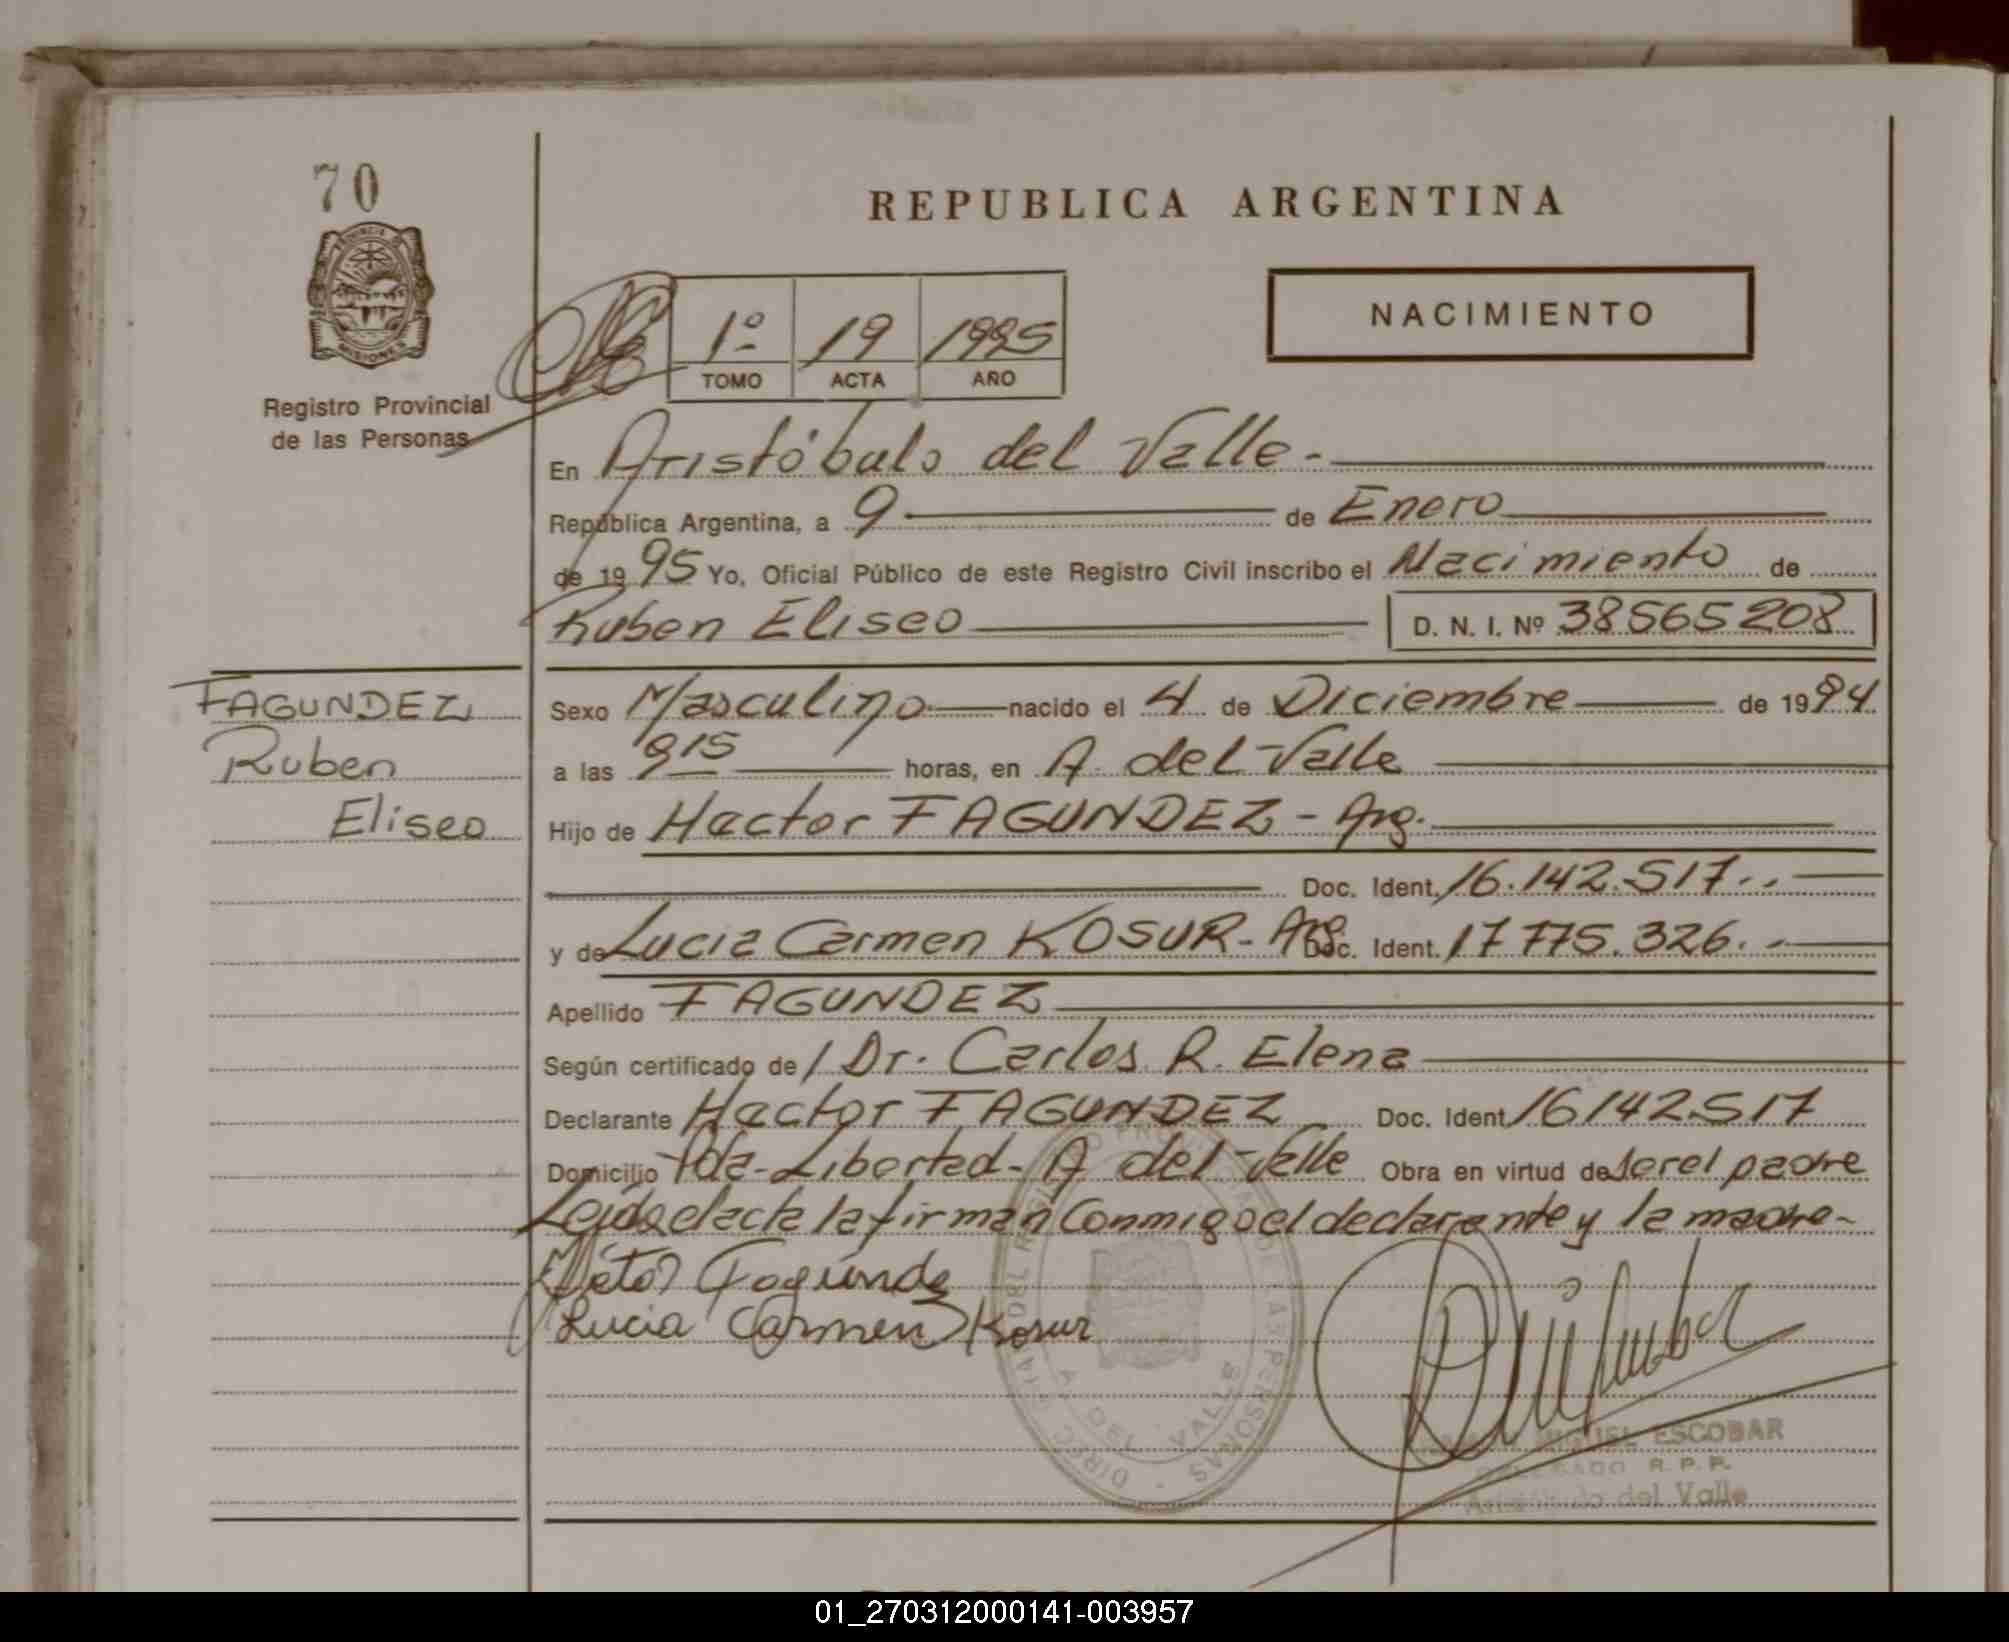 70
REPUBLICA ARGENTINA
PROVINCIA DE
MISIONES
Registro Provincial
de las Personas
1º 19 1995
TOMO ACTA AÑO
NACIMIENTO
En Aristóbulo del Valle.-
República Argentina, a 9 de Enero
de 1995 Yo, Oficial Público de este Registro Civil inscribo el Nacimiento de
Ruben Eliseo D. N. I. Nº 38565208
FAGUNDEZ
Ruben
Eliseo
Sexo Masculino nacido el 4 de Diciembre de 1994
a las 9 15 horas, en A. del Valle
Hijo de Hector FAGUNDEZ - Arg.
Doc. Ident. 16.142.517..
y de Lucia Carmen KOSUR - Arg. Doc. Ident. 17.775.326.-
Apellido FAGUNDEZ
Según certificado de / Dr. Carlos R. Elena
Declarante Hector FAGUNDEZ Doc. Ident 16142517
Domicilio Pda- Libertad - A del Valle Obra en virtud de ser el padre
Leída el acta la firman conmigo el declarante y la madre-
Lucia Carmen Kosur
A. DEL VALLE
MIGUEL ESCOBAR
DELEGADO R. P. P.
Aristóbulo del Valle
01_270312000141-003957